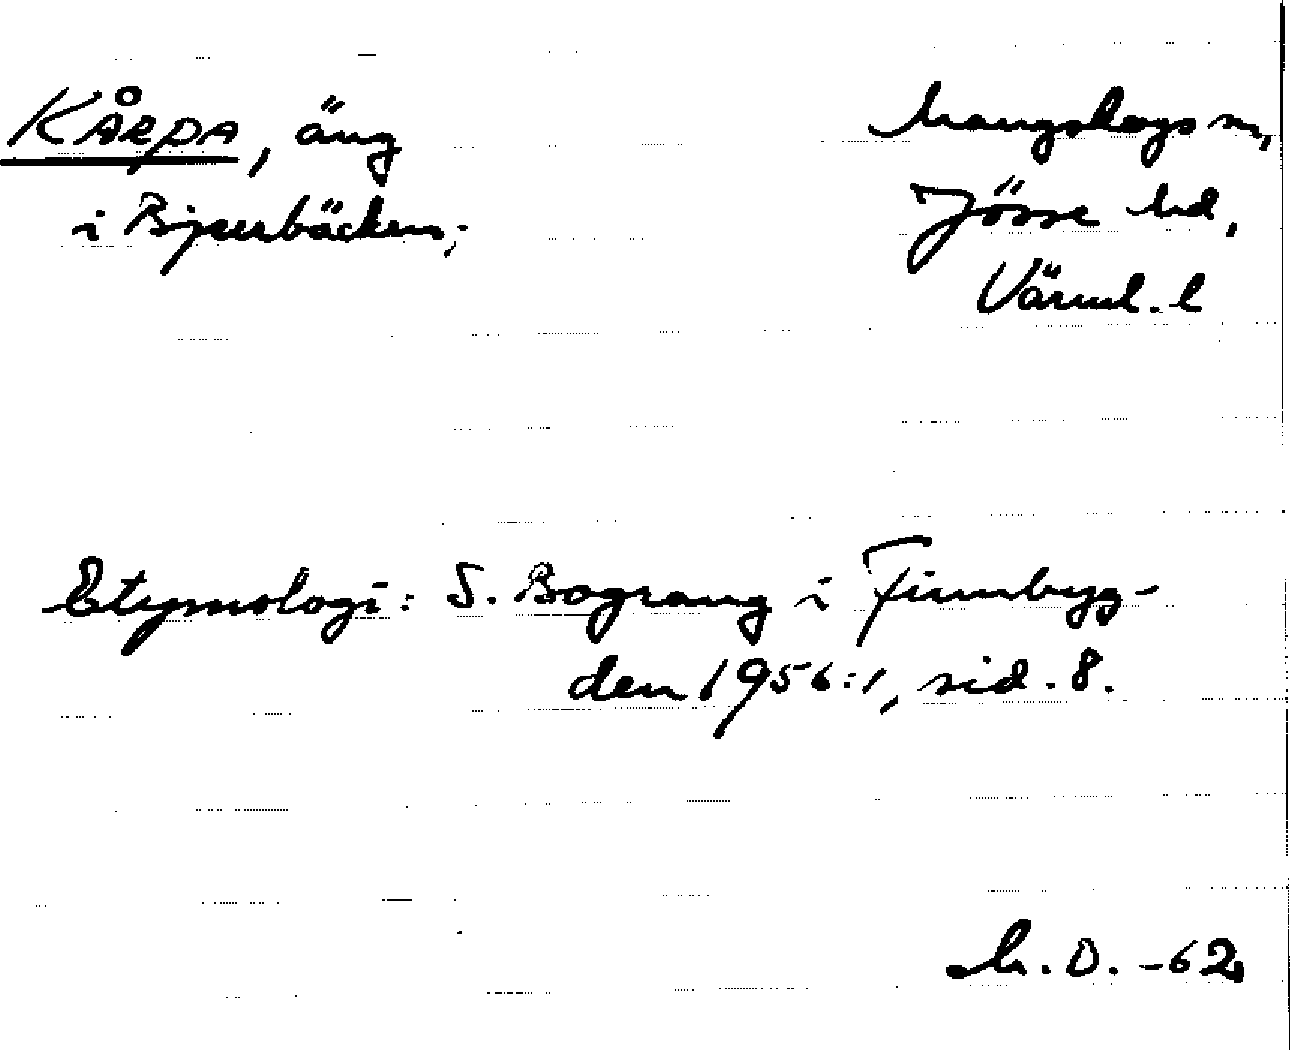 KÅRPA, äng
i Bjurbäcken;
Mangskogs sn,
Jösse hd,
Värml. l
Etymologi: S. Bograng i Finnbyg-
den 1956:1, sid. 8.
M. O. -62